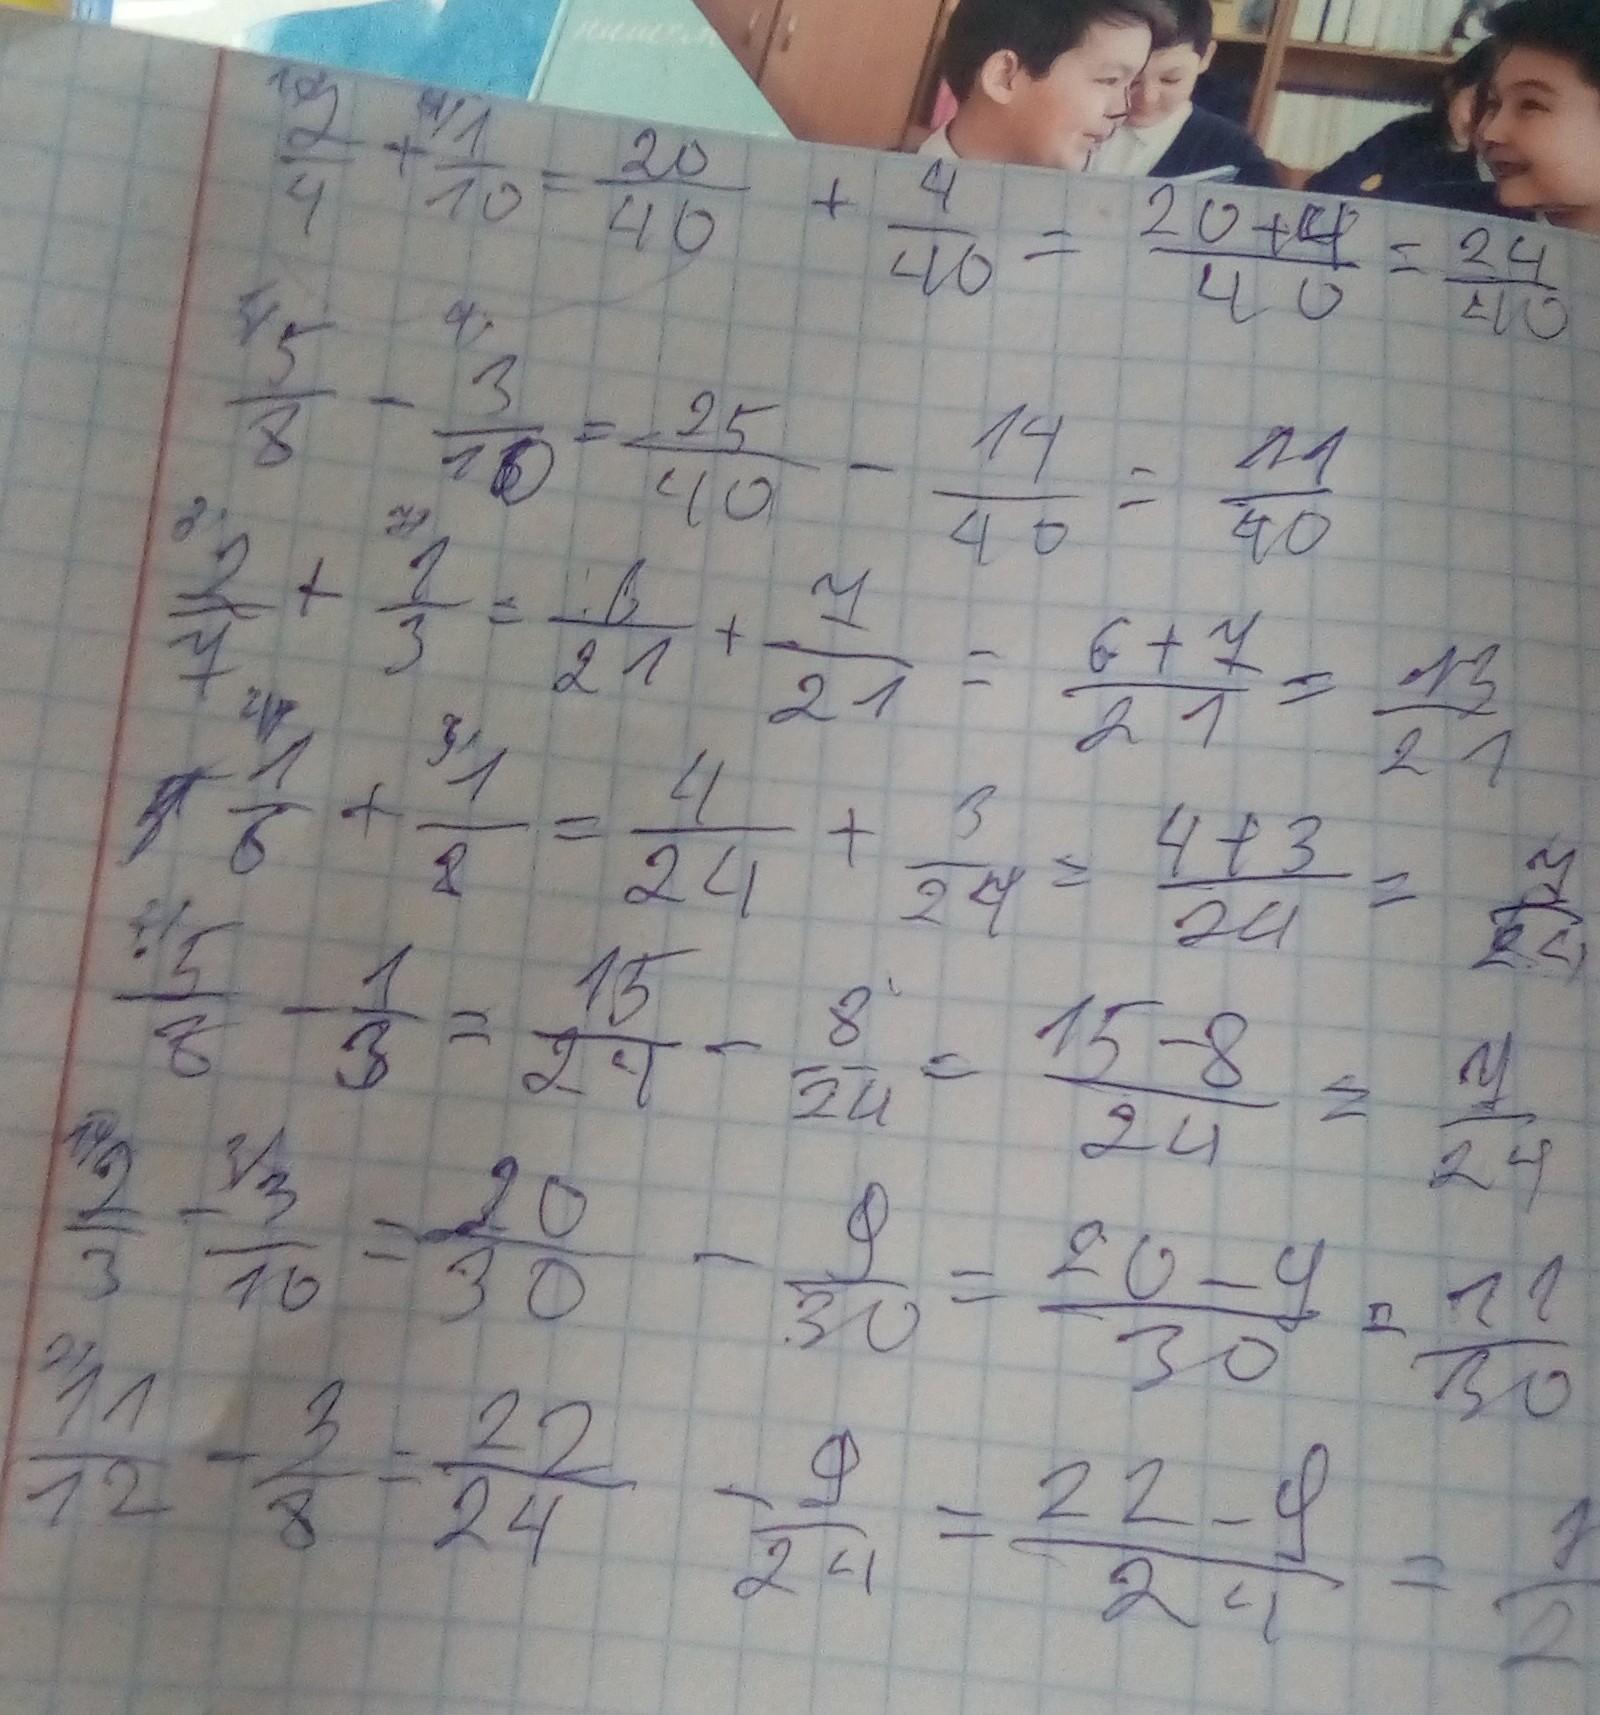 2/4 + 1/10 = 20/40 + 4/40 = 20+4/40 = 24/40
5/8 - 3/10 = 25/40 - 14/40 = 11/40
2/7 + 1/3 = 6/21 + 7/21 = 6+7/21 = 13/21
1/6 + 1/8 = 4/24 + 3/24 = 4+3/24 = 7/24
5/8 - 1/3 = 15/24 - 8/24 = 15-8/24 = 7/24
2/3 - 3/10 = 20/30 - 9/30 = 20-9/30 = 11/30
11/12 - 3/8 = 22/24 - 9/24 = 22-9/24 =